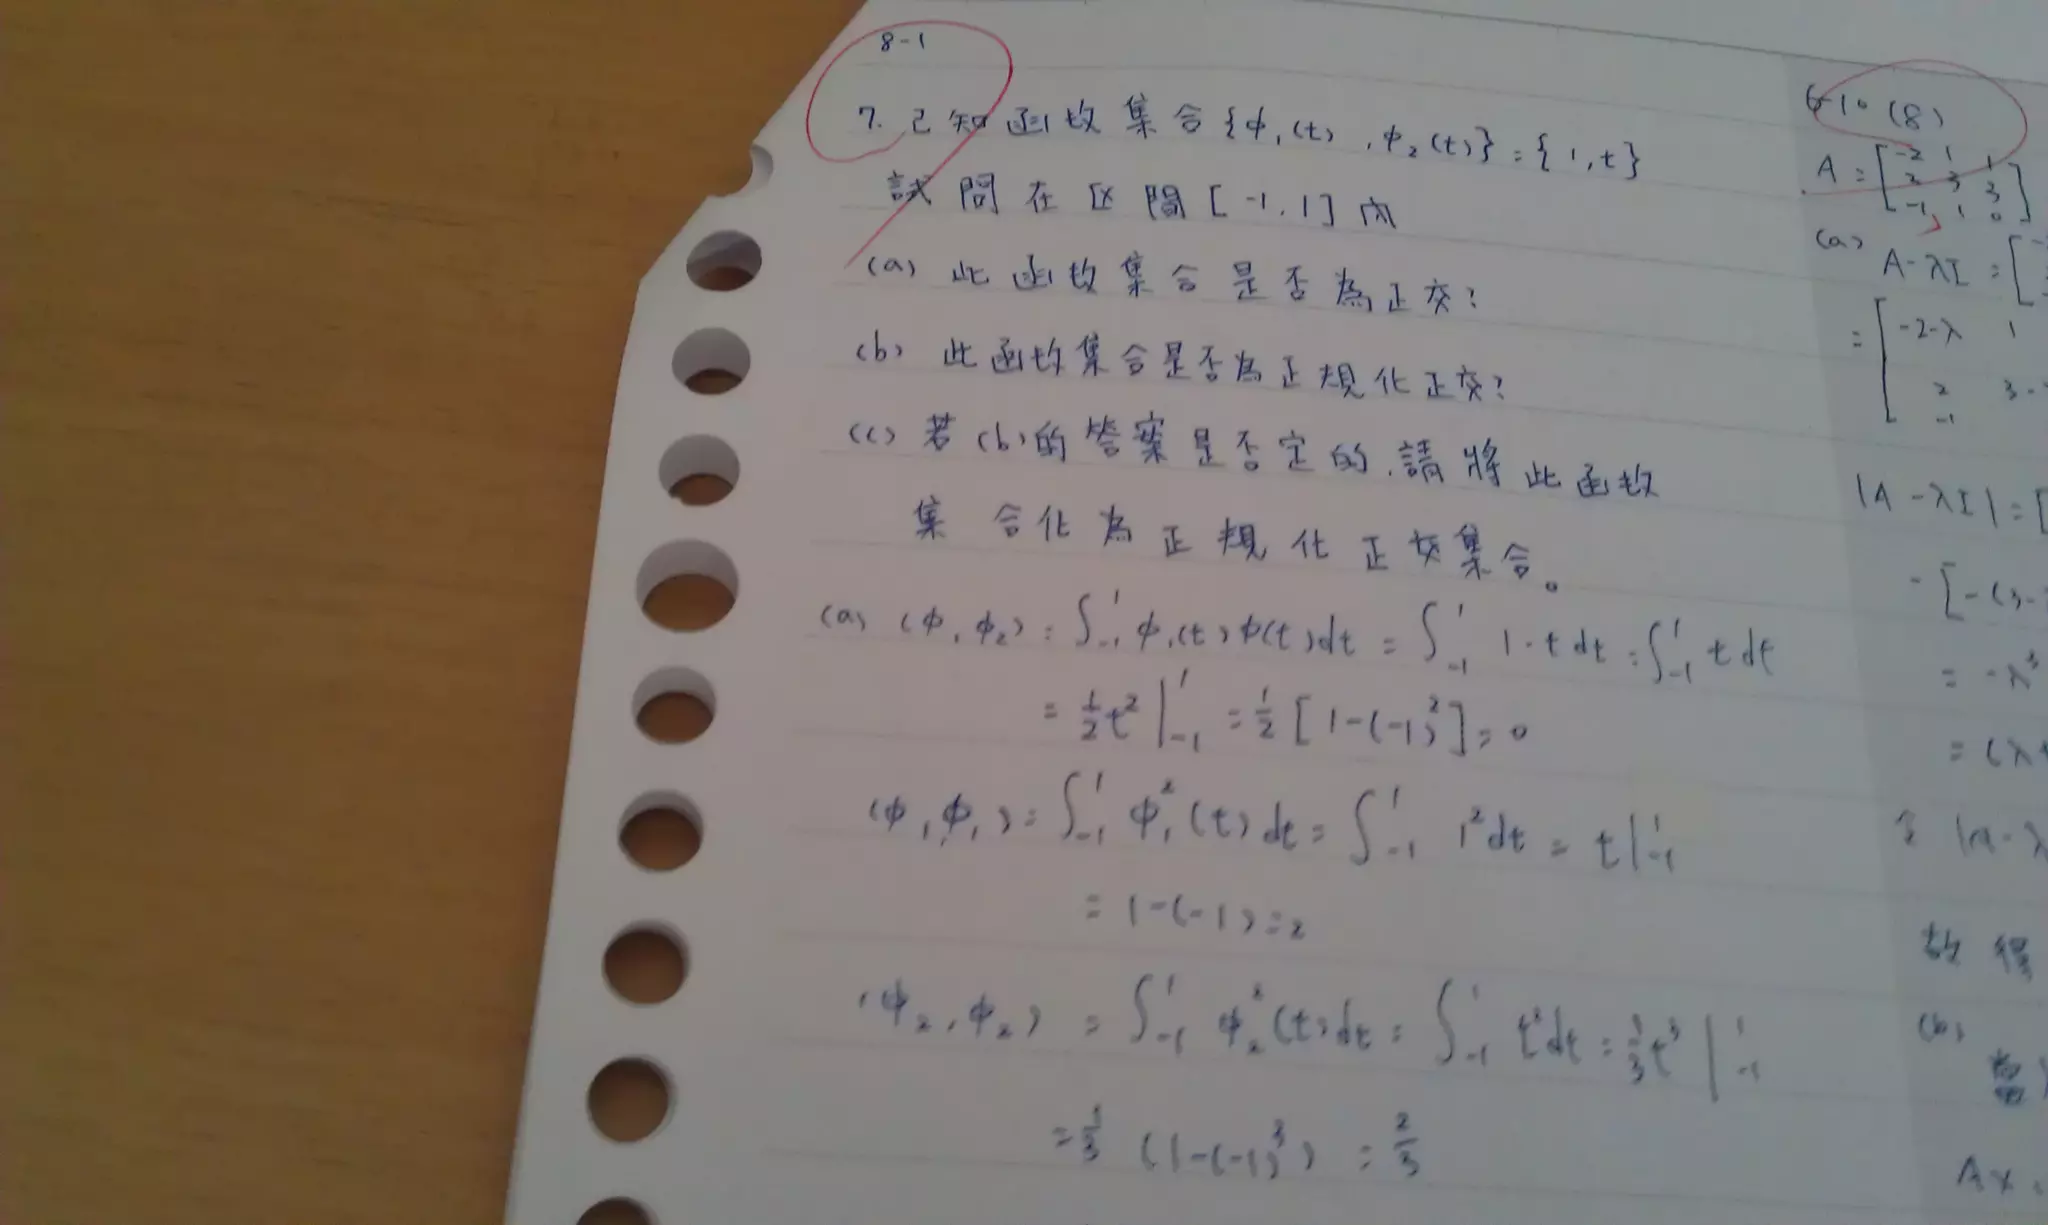 8-1
7. 已知函数集合{φ₁(t), φ₂(t)} = {1, t}
試問在区間[-1, 1]內
(a) 此函数集合是否為正交?
(b) 此函数集合是否為正規化正交?
(c) 若(b)的答案是否定的, 請將此函数
集合化為正規化正交集合。
(a) (φ₁, φ₂) = ∫₋₁¹ φ₁(t) φ(t) dt = ∫₋₁¹ 1·t dt = ∫₋₁¹ t dt
= ½t² |₋₁¹ = ½ [1-(-1)²] = 0
(φ₁, φ₁) = ∫₋₁¹ φ₁²(t) dt = ∫₋₁¹ 1² dt = t |₋₁¹
= 1-(-1) = 2
(φ₂, φ₂) = ∫₋₁¹ φ₂²(t) dt = ∫₋₁¹ t² dt = ⅓t³ |₋₁¹
= ⅓ (1-(-1)³) = ⅔
6-10 (8)
A = [-2 1 1
2 3 3
-1 1 0]
(a) A-λI = [
= [-2-λ 1
2 3-
-1
|A-λI| = [
-[-(3-
= -λ³
= (λ+
故得
(b)
當
Ax =